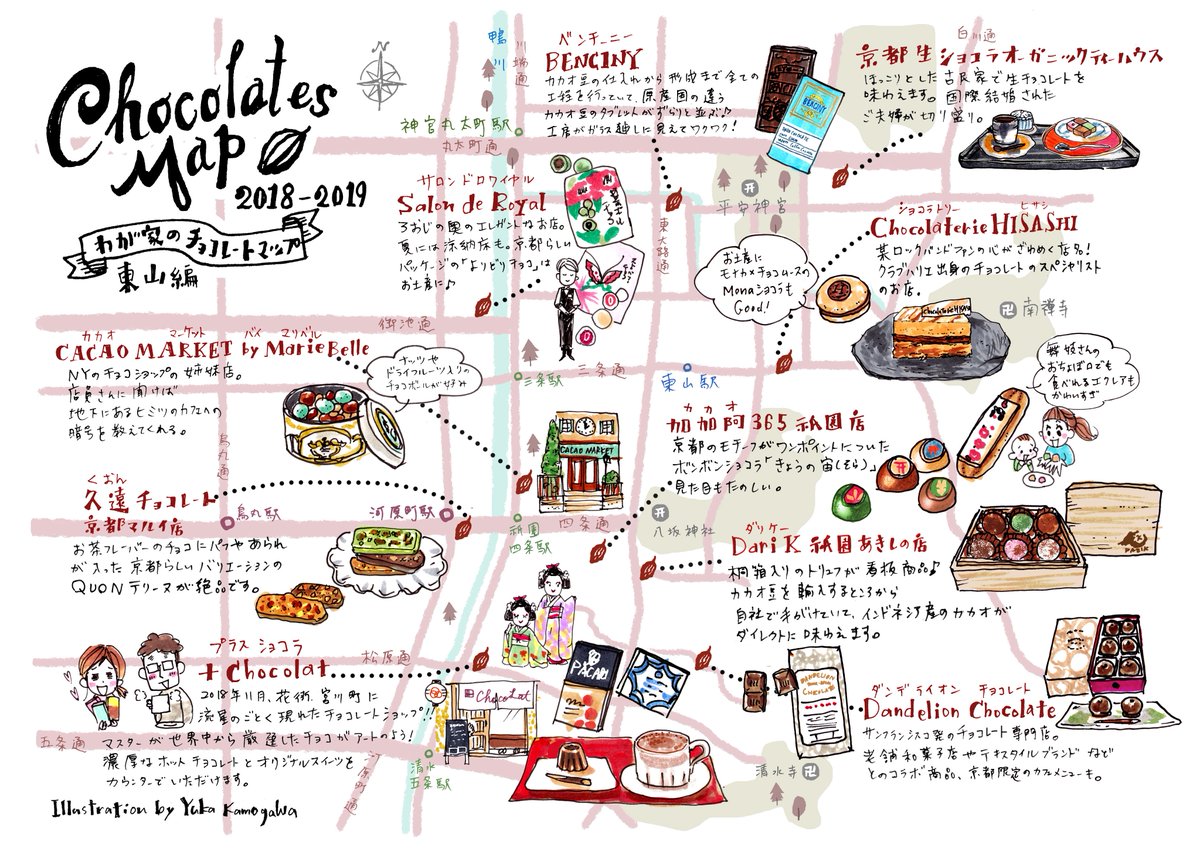 Chocolates
Map
2018-2019
わが家のチョコレートマップ
東山編
N
鴨川
川端通
白川通
ベンチーニー
BENCINY
カカオ豆の仕入れから形成まで全ての
工程を行っていて、原産国の違う
カカオ豆のタブレットがずらりと並ぶ♪
工房がガラス越しに見えてワクワク!
BENCINY
京都生ショコラオーガニックティーハウス
ほっこりとした古民家で生チョコレートを
味わえます。国際結婚された
ご夫婦が切り盛り。
神宮丸太町駅
丸太町通
平安神宮
東大路通
サロンドロワイヤル
Salon de Royal
ろおじの奥のエレガントなお店。
夏には涼納床も。京都らしい
パッケージの「よりどりチョコ」は
お土産に♪
ショコラトリー ヒサシ
Chocolaterie HISASHI
某ロックバンドファンの心がざわめく店名!
クラブハリエ出身のチョコレートのスペシャリスト
のお店。
お土産に
モナカ×チョコムースの
Monaショコラも
Good!
Chocolaterie HISASHI
南禅寺
御池通
カカオ マーケット バイ マリベル
CACAO MARKET by MarieBelle
NYのチョコショップの姉妹店。
店員さんに聞けば
地下にあるヒミツのカフェへの
暗号を教えてくれる。
ナッツや
ドライフルーツ入りの
チョコボールが好み
三条駅
三条通
東山駅
CACAO MARKET
舞妓さんの
おちょぼ口でも
食べれるエクレアも
かわいすぎ
カカオ
加加阿365祇園店
京都のモチーフがワンポイントについた
ボンボンショコラ「きょうの宙(そら)」
見た目もたのしい。
烏丸通
くおん
久遠チョコレート
京都マルイ店
お茶フレーバーのチョコにバラやあられ
が入った京都らしいバリエーションの
QUONテリーヌが絶品です。
烏丸駅
河原町駅
祇園
四条駅
四条通
八坂神社
ダリケー
Dari K 祇園あきしの店
桐箱入りのトリュフが看板商品♪
カカオ豆を輸入するところから
自社で手がけていて、インドネシア産のカカオが
ダイレクトに味わえます。
DARI K
プラス ショコラ
+Chocolat
2018年11月、花街、宮川町に
流星のごとく現れたチョコレートショップ!!
マスターが世界中から厳選したチョコがアートのよう!
濃厚なホットチョコレートとオリジナルスイーツを
カウンターでいただけます。
松原通
五条通
河原町通
清水
五条駅
Chocolat
PACARI
DANDELION
CHOCOLATE
清水寺
ダンデライオン チョコレート
Dandelion Chocolate
サンフランシスコ発のチョコレート専門店。
老舗和菓子店やテキスタイルブランドなど
とのコラボ商品、京都限定のカフェメニューも。
Illustration by Yuka Kamogawa